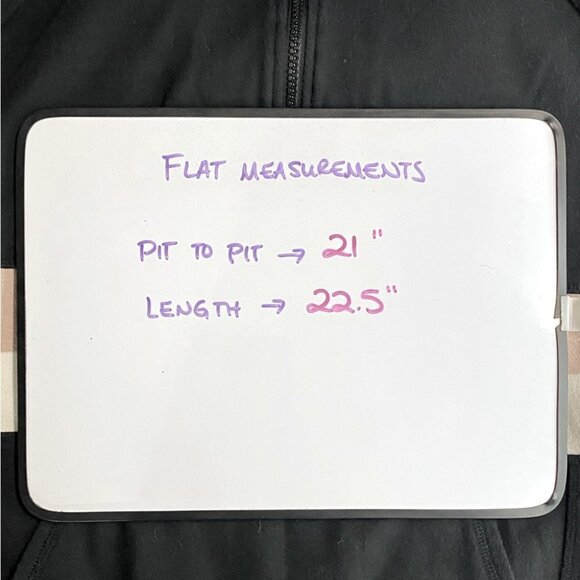 FLAT MEASUREMENTS
PIT TO PIT → 21"
LENGTH → 22.5"